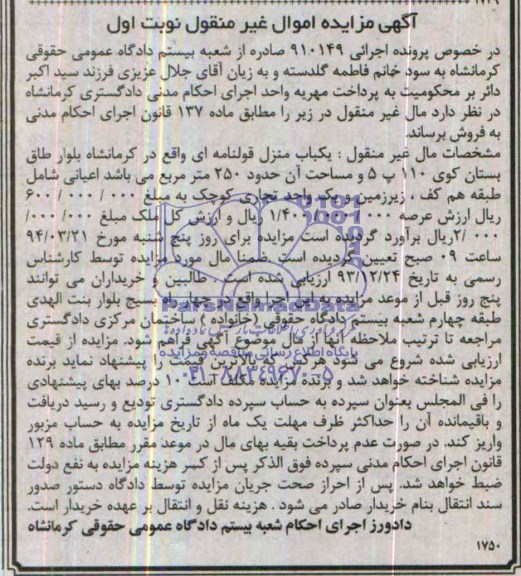 آگهی مزایده اموال غیر منقول نوبت اول
در خصوص پرونده اجرائی ۹۱۰۱۴۹ صادره از شعبه بیستم دادگاه عمومی حقوقی
کرمانشاه به سود خانم فاطمه گلدسته و به زیان آقای جلال عزیزی فرزند سید اکبر
دائر بر محکومیت به پرداخت مهریه واحد اجرای احکام مدنی دادگستری کرمانشاه
در نظر دارد مال غیر منقول در زیر را مطابق ماده ۱۳۷ قانون اجرای احکام مدنی
به فروش برساند.
مشخصات مال غیر منقول : یکباب منزل قولنامه ای واقع در کرمانشاه بلوار طاق
بستان کوی ۱۱۰ پ ۵ و مساحت آن حدود ۲۵۰ متر مربع می باشد اعیانی شامل
طبقه هم کف ، زیرزمین و یک واحد تجاری کوچک به مبلغ ۰۰۰/ ۰۰۰/ ۶۰۰
ریال ارزش عرصه ۰۰۰/ ۰۰۰/ ۱/۴۰۰ ریال و ارزش کل ملک مبلغ ۰۰۰/ ۰۰۰/
۲/۰۰۰ ریال برآورد گردیده است مزایده برای روز پنج شنبه مورخ ۹۴/۰۳/۲۱
ساعت ۰۹ صبح تعیین گردیده است ضمنا مال مورد مزایده توسط کارشناس
رسمی به تاریخ ۹۳/۱۲/۲۴ ارزیابی شده است . طالبین و خریداران می توانند
پنج روز قبل از موعد مزایده به این اجرا واقع در چهار راه بسیج بلوار بنت الهدی
طبقه چهارم شعبه بیستم دادگاه حقوقی (خانواده ) ساختمان مرکزی دادگستری
مراجعه تا ترتیب ملاحظه آنها از مال موضوع آگهی فراهم شود. مزایده از قیمت
ارزیابی شده شروع می شود هرکس که بالاترین قیمت را پیشنهاد نماید برنده
مزایده شناخته خواهد شد و برنده مزایده مکلف است ۱۰ درصد بهای پیشنهادی
را فی المجلس بعنوان سپرده به حساب سپرده دادگستری تودیع و رسید دریافت
و باقیمانده آن را حداکثر ظرف مهلت یک ماه از تاریخ مزایده به حساب مزبور
واریز کند. در صورت عدم پرداخت بقیه بهای مال در موعد مقرر مطابق ماده ۱۲۹
قانون اجرای احکام مدنی سپرده فوق الذکر پس از کسر هزینه مزایده به نفع دولت
ضبط خواهد شد. پس از احراز صحت جریان مزایده توسط دادگاه دستور صدور
سند انتقال بنام خریدار صادر می شود . هزینه نقل و انتقال بر عهده خریدار است.
دادورز اجرای احکام شعبه بیستم دادگاه عمومی حقوقی کرمانشاه
۱۷۵۰
ParsNamadData
پایگاه اطلاع رسانی مناقصه و مزایده
۰۲۱-۸۸۳۴۹۶۷۰-۵